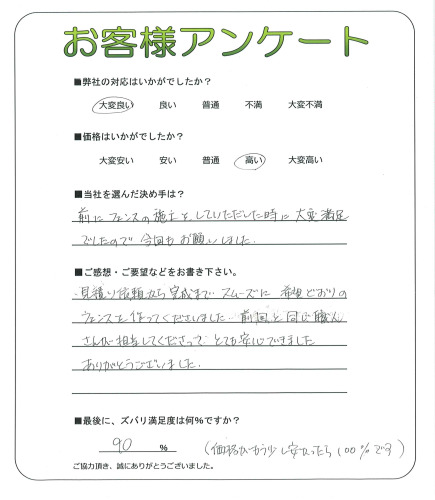 お客様アンケート
■弊社の対応はいかがでしたか？
大変良い 良い 普通 不満 大変不満
■価格はいかがでしたか？
大変安い 安い 普通 高い 大変高い
■当社を選んだ決め手は？
前にフェンスの施工をしていただいた時に大変満足
でしたので今回もお願いしました.
■ご感想・ご要望などをお書き下さい。
見積り依頼から完成までスムーズに希望どおりの
フェンスを作ってくださいました 前回と同じ職人
さんが担当してくださって とても安心できました
ありがとうございました.
■最後に、ズバリ満足度は何%ですか？
90 % (価格がもう少し安かったら100%です)
ご協力頂き、誠にありがとうございました。